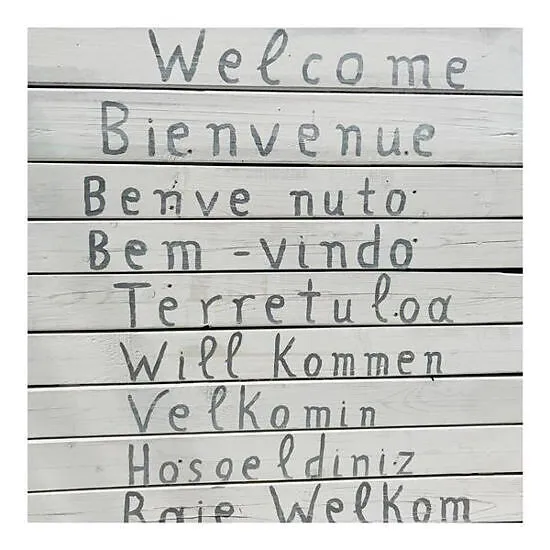 Welcome
Bienvenue
Benve nuto
Bem-vindo
Terretuloa
Will Kommen
Velkomin
Hosgeldiniz
Baie Welkom